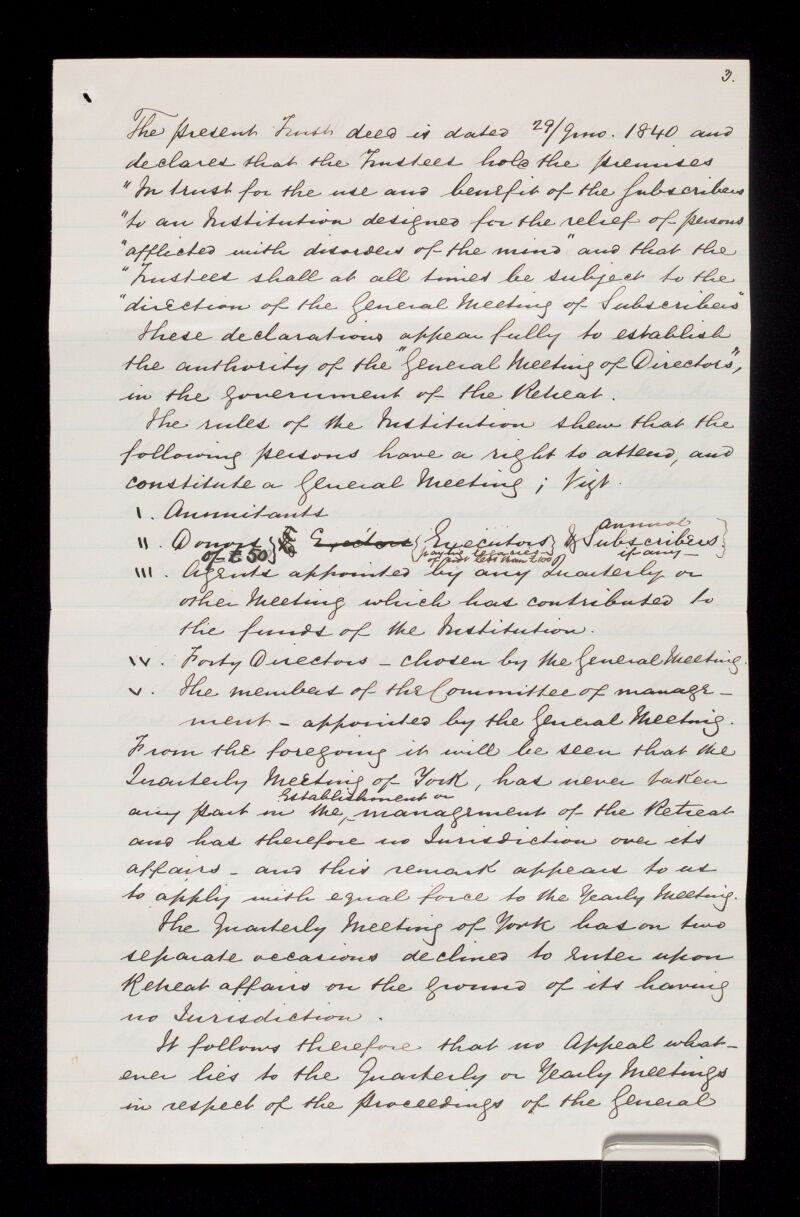 3.
The present Trust deed is dated 29/9mo. 1840 and
declares that the Trustees hold the premises
"In trust for the use and benefit of the Subscribers
"to an Institution designed for the relief of persons
"afflicted with disorders of the mind" and that the
"Trustees shall at all times be subject to the
"direction of the General Meeting of Subscribers"
These declarations appear fully to establish
the authority of the "General Meeting of Directors",
in the government of the Retreat.
The rules of the Institution shew that the
following persons have a right to attend, and
constitute a General Meeting; Vizt.
I. Annuitants
annual
II. Donors { Executors } & Subscribers }
of £50 paying legacies of not less than £100 if any -
III. Agents appointed by any Quarterly or
other Meeting which has contributed to
the funds of the Institution.
IV. Forty Directors - chosen by the General Meeting.
V. The members of the Committee of manage-
ment - appointed by the General Meeting.
From the foregoing it will be seen that the
Quarterly Meeting of York, has never taken
Establishment or
any part in the, management of the Retreat
and has therefore no Jurisdiction over its
affairs - and this remark appears to us
to apply with equal force to the Yearly Meeting.
The Quarterly Meeting of York has on two
separate occasions declined to enter upon
Retreat affairs on the ground of its having
no Jurisdiction.
It follows therefore that no Appeal what-
ever lies to the Quarterly or Yearly Meetings
in respect of the Proceedings of the General